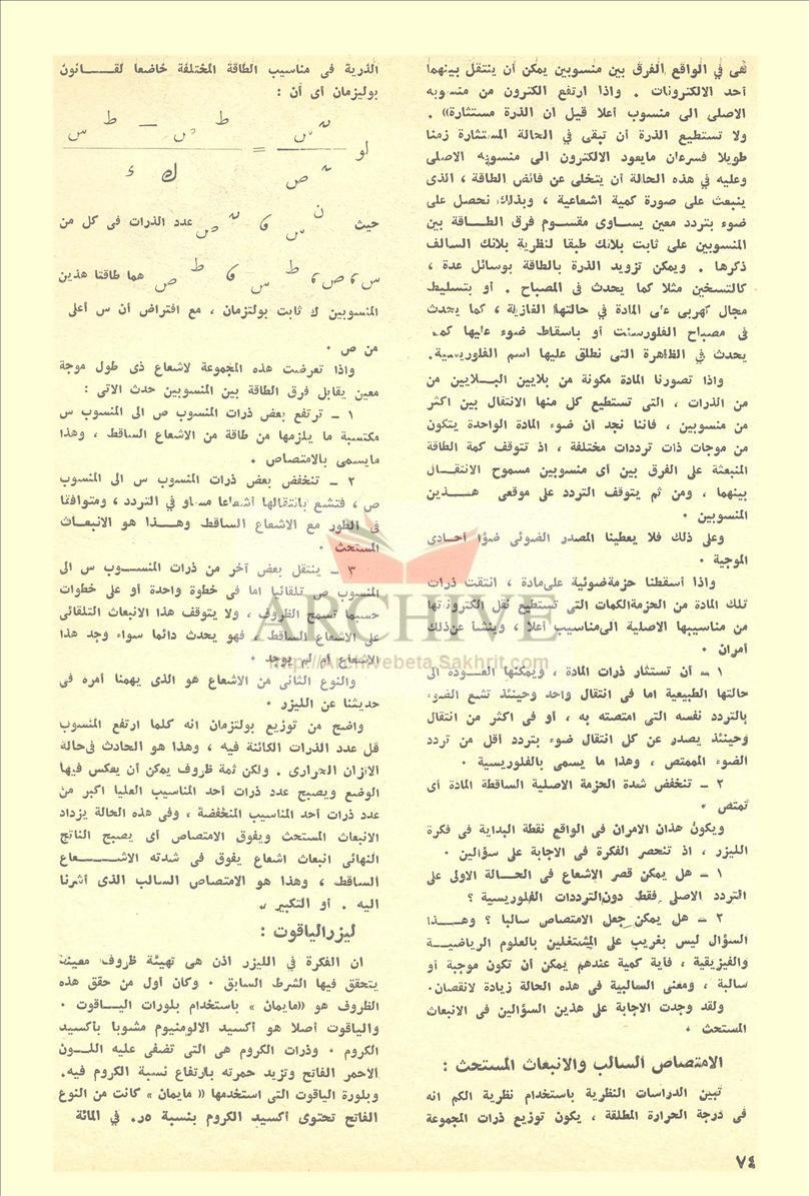 فى في الواقع الفرق بين منسوبين يمكن أن ينتقل بينهما
أحد الالكترونات . واذا ارتفع الكترون من منسوبه
الاصلى الى منسوب أعلا قيل ان الذرة مستثارة» .
ولا تستطيع الذرة أن تبقى في الحالة المستثارة زمنا
طويلا فسرعان مايعود الالكترون الى منسوبه الاصلى
وعليه في هذه الحالة أن يتخلى عن فائض الطاقة ، الذى
ينبعث على صورة كمية اشعاعية ، وبذلك نحصل على
ضوء بتردد معين يساوى مقسوم فرق الطاقة بين
المنسوبين على ثابت بلانك طبقا لنظرية بلانك السالف
ذكرها . ويمكن تزويد الذرة بالطاقة بوسائل عدة ،
كالتسخين مثلا كما يحدث فى المصباح . أو بتسليط
مجال كهربى على المادة في حالتها الغازية ، كما يحدث
فى مصباح الفلورسنت أو باسقاط ضوء عليها كما
يحدث في الظاهرة التى نطلق عليها اسم الفلوريسية.
واذا تصورنا المادة مكونة من بلايين البلايين من
من الذرات ، التى تستطيع كل منها الانتقال بين اكثر
من منسوبين ، فاننا نجد ان ضوء المادة الواحدة يتكون
من موجات ذات ترددات مختلفة ، اذ تتوقف كمة الطاقة
المنبعثة على الفرق بين أى منسوبين مسموح الانتقال
بينهما ، ومن ثم يتوقف التردد على موقعى هذين
المنسوبين .
وعلى ذلك فلا يعطينا المصدر الضوئى ضوءا احادى
الموجية .
واذا أسقطنا حزمة ضوئية على مادة ، انتقت ذرات
تلك المادة من الحزمة الكمات التى تستطيع نقل الكتروناتها
من مناسيبها الاصلية الى مناسيب أعلا ، وينشأ عن ذلك
أمران .
١ ـ أن تستثار ذرات المادة ، ويمكنها العودة الى
حالتها الطبيعية اما فى انتقال واحد وحينئذ تشع الضوء
بالتردد نفسه التى امتصته به ، أو فى اكثر من انتقال
وحينئذ يصدر عن كل انتقال ضوء بتردد أقل من تردد
الضوء الممتص ، وهذا ما يسمى بالفلوريسية .
٢ ـ تنخفض شدة الحزمة الاصلية الساقطة المادة أى
تمتص .
ويكون هذان الامران فى الواقع نقطة البداية فى فكرة
الليزر ، اذ تنحصر الفكرة فى الاجابة على سؤالين .
١ ـ هل يمكن قصر الإشعاع فى الحالة الاولى على
التردد الاصلى فقط دون الترددات الفلوريسية ؟
٢ ـ هل يمكن جعل الامتصاص سالبا ؟ وهذا
السؤال ليس بغريب على المشتغلين بالعلوم الرياضية
والفيزيقية ، فاية كمية عندهم يمكن أن تكون موجبة أو
سالبة ، ومعنى السالبية فى هذه الحالة زيادة لانقصان.
ولقد وجدت الاجابة على هذين السؤالين فى الانبعاث
المستحث .
الامتصاص السالب والانبعاث المستحث :
تبين الدراسات النظرية باستخدام نظرية الكم انه
فى درجة الحرارة المطلقة ، يكون توزيع ذرات المجموعة
الذرية فى مناسيب الطاقة المختلفة خاضعا لقانون
بوليزمان أى أن :
لو ن س / ن ص = ط ص ـ ط س / ك ء
حيث ن س ، ن ص عدد الذرات فى كل من
س ، ص ، ط س ، ط ص هما طاقتا هذين
المنسوبين ك ثابت بولتزمان ، مع افتراض أن س أعلى
من ص .
واذا تعرضت هذه المجموعة لاشعاع ذى طول موجة
معين يقابل فرق الطاقة بين المنسوبين حدث الاتى :
١ ـ ترتفع بعض ذرات المنسوب ص الى المنسوب س
مكتسبة ما يلزمها من طاقة من الاشعاع الساقط ، وهذا
مايسمى بالامتصاص .
٢ ـ تنخفض بعض ذرات المنسوب س الى المنسوب
ص ، فتشع بانتقالها أشعاعا مساو فى التردد ، ومتوافقا
فى الطور مع الاشعاع الساقط وهذا هو الانبعاث
المستحث .
٣ ـ ينتقل بعض آخر من ذرات المنسوب س الى
المنسوب ص تلقائيا اما فى خطوة واحدة أو على خطوات
حسبما تسمح الظروف ، ولا يتوقف هذا الانبعاث التلقائى
على الاشعاع الساقط ، فهو يحدث دائما سواء وجد هذا
الاشعاع ام لم يوجد .
والنوع الثانى من الاشعاع هو الذى يهمنا أمره فى
حديثنا عن الليزر .
واضح من توزيع بولتزمان انه كلما ارتفع المنسوب
قل عدد الذرات الكائنة فيه ، وهذا هو الحادث فى حالة
الاتزان الحرارى . ولكن ثمة ظروف يمكن أن يعكس فيها
الوضع ويصبح عدد ذرات أحد المناسيب العليا اكبر من
عدد ذرات أحد المناسيب المنخفضة ، وفى هذه الحالة يزداد
الانبعاث المستحث ويفوق الامتصاص أى يصبح الناتج
النهائى انبعاث اشعاع يفوق فى شدته الاشعاع
الساقط ، وهذا هو الامتصاص السالب الذى أشرنا
اليه . أو التكبير .
ليزر الياقوت :
ان الفكرة في الليزر اذن هى تهيئة ظروف معينة
يتحقق فيها الشرط السابق . وكان أول من حقق هذه
الظروف هو «مايمان » باستخدام بلورات الياقوت .
والياقوت أصلا هو أكسيد الالومنيوم مشوبا بأكسيد
الكروم . وذرات الكروم هى التى تضفى عليه اللون
الاحمر الفاتح وتزيد حمرته بارتفاع نسبة الكروم فيه.
وبلورة الياقوت التى استخدمها « مايمان » كانت من النوع
الفاتح تحتوى أكسيد الكروم بنسبة ٥ر. في المائة
ARCHIVE
http://Archivebeta.Sakhrit.com
٧٤